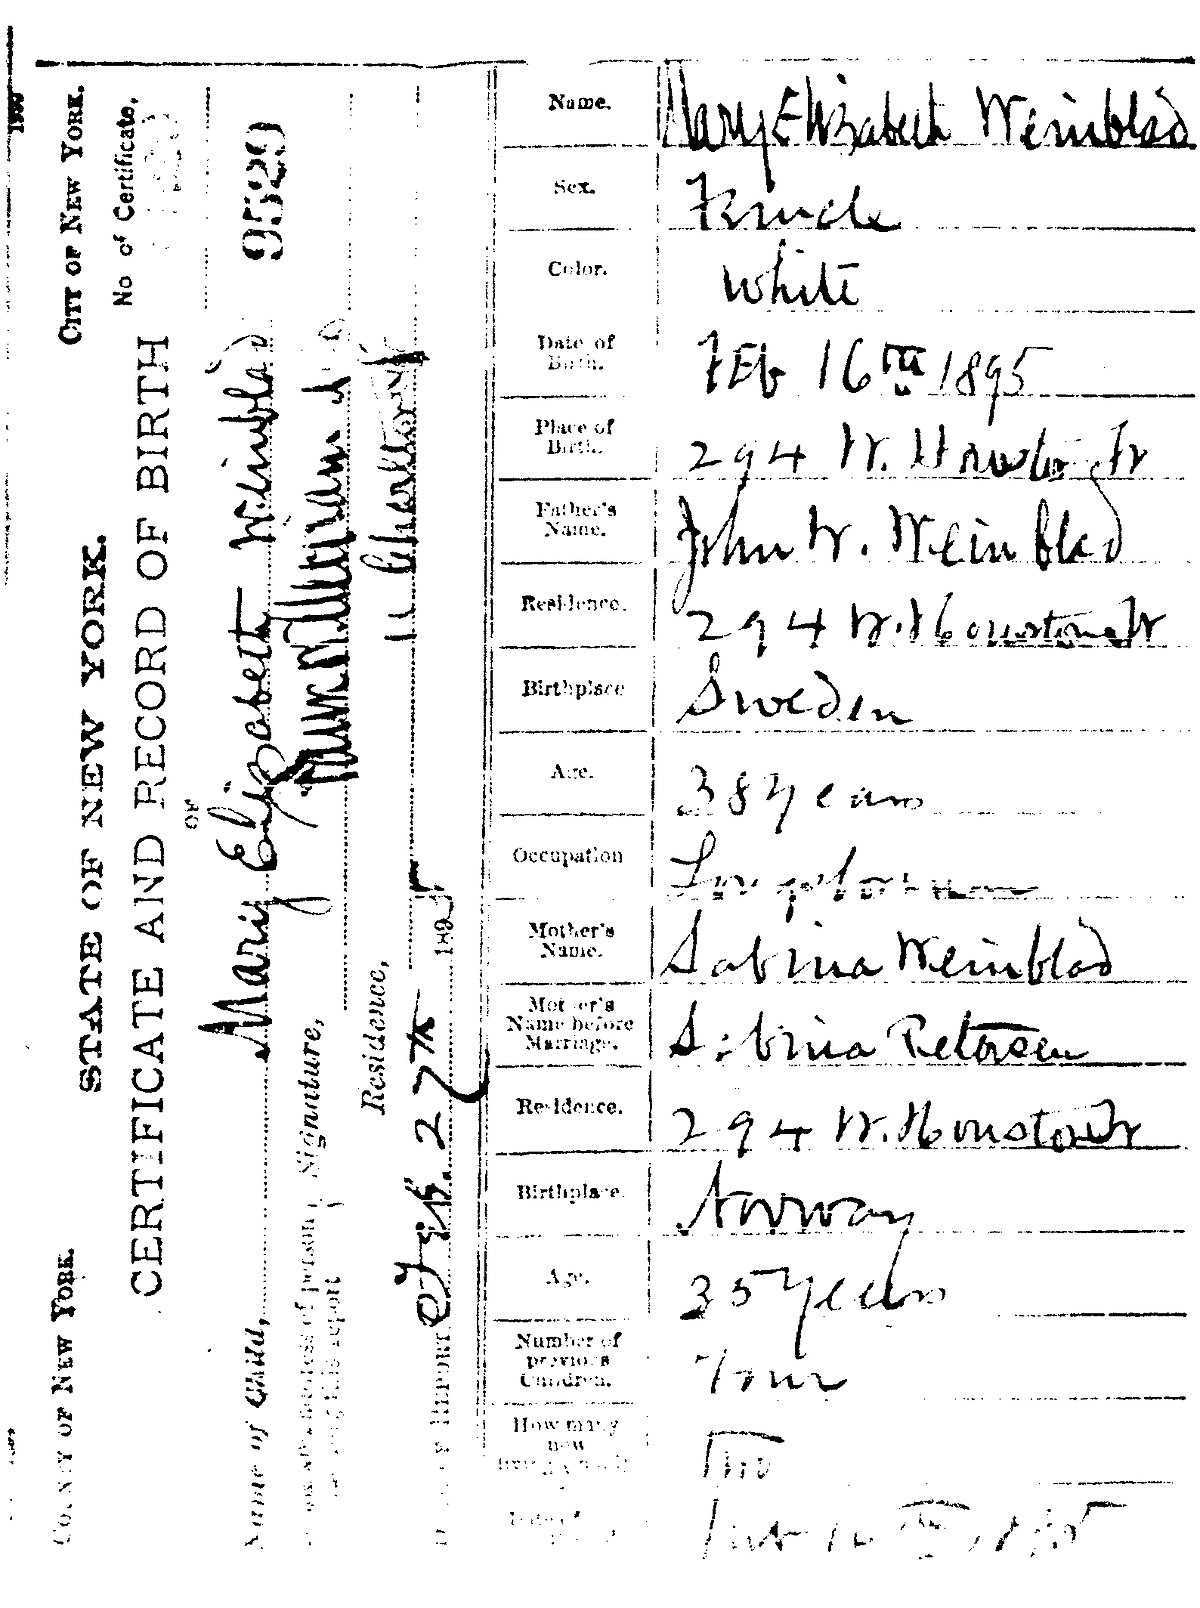 COUNTY OF NEW YORK.
CITY OF NEW YORK.
STATE OF NEW YORK.
No of Certificate,
CERTIFICATE AND RECORD OF BIRTH
OF
9529
Name of Child, Mary Elizabeth Weinblad
Signature,
Residence, 11 Charlton St
REPORT Feb. 27th 1895
Name. Mary Elizabeth Weinblad
Sex. Female
Color. White
Date of Birth. Feb 16th 1895
Place of Birth. 294 W. Houston St
Father's Name. John W. Weinblad
Residence. 294 W. Houston St
Birthplace Sweden
Age. 38 years
Occupation Longshoreman
Mother's Name. Sabina Weinblad
Mother's Name before Marriage. Sabina Petersen
Residence. 294 W. Houston St
Birthplace. Norway
Age. 35 years
Number of previous Children. Four
How many now Two